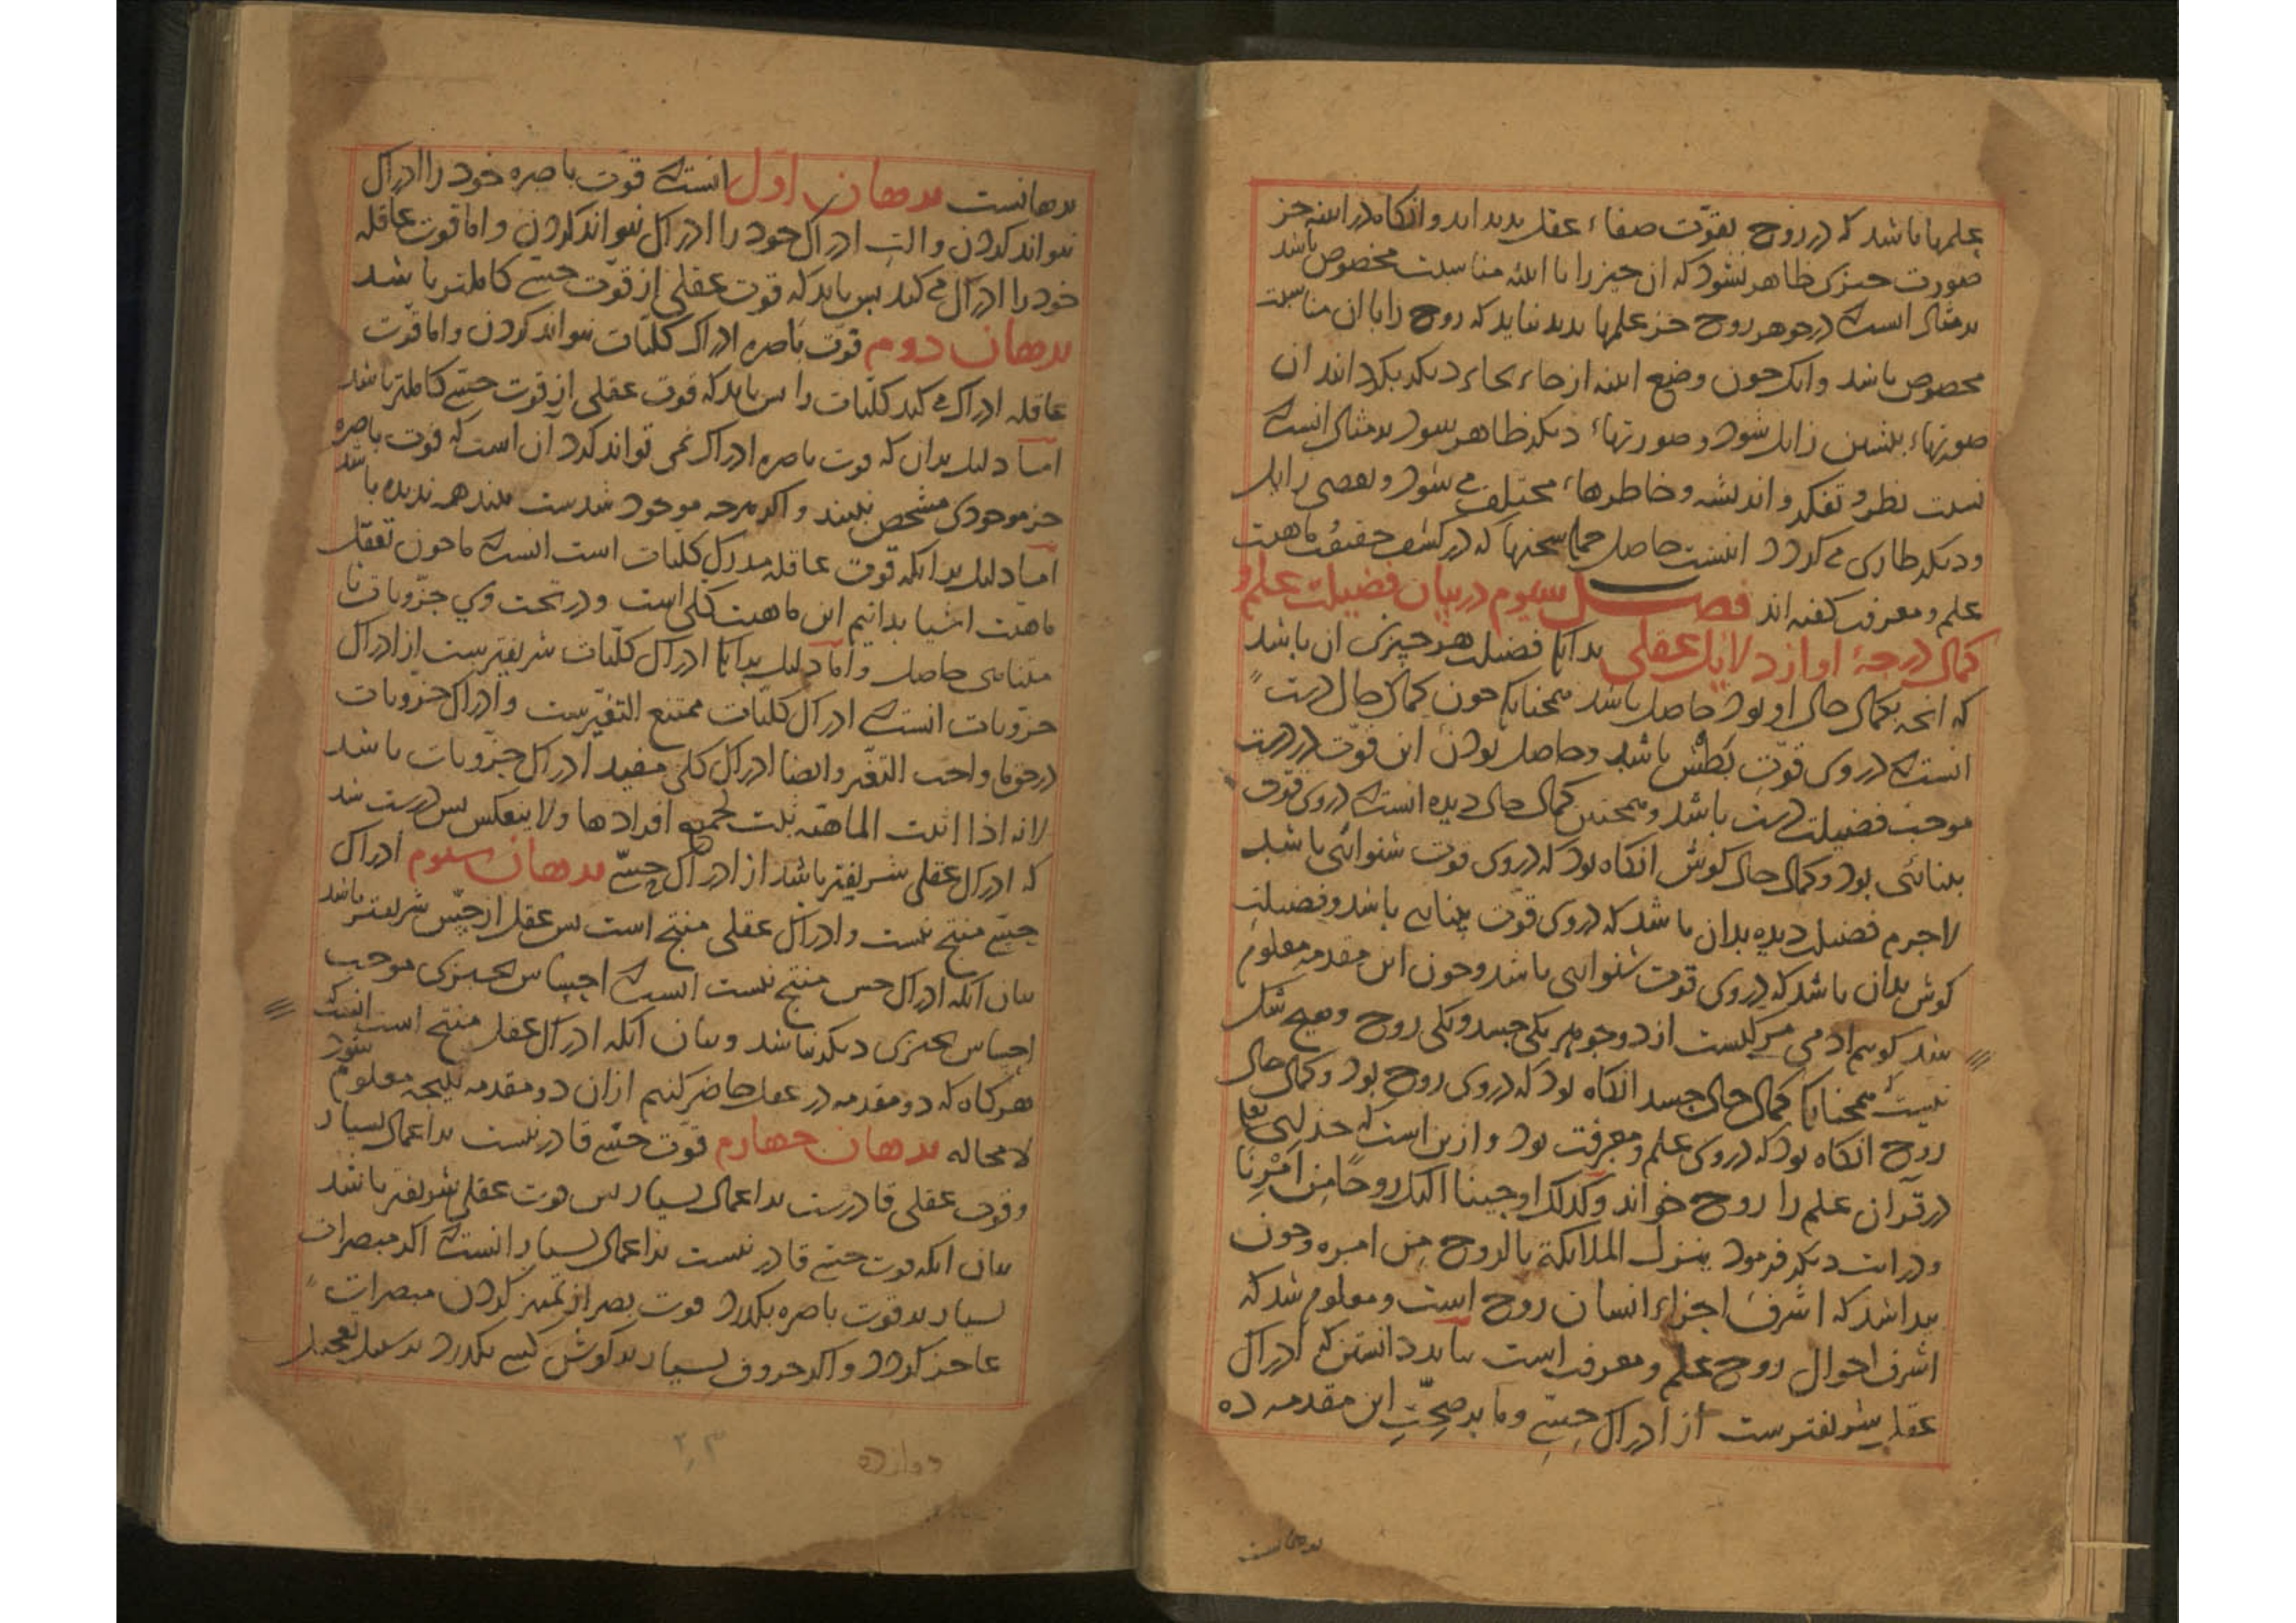 علمها باشد که در روح بقوّت صفاء عقل بدید اید و انکاه در اینه جز
صورت چیزی ظاهر نشود که ان چیز را با اینه مناسبت مخصوص باشد
بر مثال انست که در جوهر روح جز علمها بدید نیاید که روح را با ان مناسبت
مخصوص باشد و انک جون وضع اینه از جاء بجاء دیکر بکردانند ان
صورتهاء بیشین زایل شود و صورتهاء دیکر ظاهر شود بر مثال انست که
نسبت نظر و تفکر و اندیشه و خاطرهاء مختلف می شود و بعضی زایل
و دیکر طاری می کردد اینست حاصل جمله سخنها که در کشف حقیقت ماهیت
علم و معرفت کفته اند فصل سیوم در بیان فضیلت علم و
کمال درجۀ او از دلایل عقلی بدانک فضیلت هر چیزی ان باشد
که انچه بکمال حال او بود حاصل باشد همچنانک جون کمال حال دست
انست که در وی قوّت بطش باشد و حاصل بودن این قوّت در دست
موجب فضیلت دست باشد و همچنین کمال حال دیده انست که در وی قوّت
بینائی بود و کمال حال کوش انکاه بود که در وی قوت شنوائی باشد
لاجرم فضیلت دیده بدان باشد که در وی قوّت بینایی باشد و فضیلت
کوش بدان باشد که در وی قوت شنوایی باشد و جون این مقدمه معلوم
شد کوییم ادمی مرکبست از دو جوهر یکی جسد و یکی روح و هیچ شک
نیست همچنانک کمال حال جسد انکاه بود که در وی روح بود و کمال حال
روح انکاه بود که در وی علم و معرفت بود و ازین است که خدای تعا
در قرآن علم را روح خواند و کذلک اوحینا الیک روحًا مِن اَمْرِنَا
و در ایت دیکر فرمود ینزل الملایکة بالروح مِن امره و جون
بیدا شد که اشرف اجزاء انسان روح است و معلوم شد که
اشرف احوال روح علم و معرفت است بباید دانستن که ادراک
عقلی شریفترست از ادراک حِسّی و ما بر صِحّتِ این مقدمه ده
برهانست
برهانست برهان اوّل انست که قوّت باصره خود را ادراک
نتواند کردن و التِ ادراک خود را ادراک نتواند کردن و اما قوت عاقله
خود را ادراک می کند بس باید که قوت عقلی از قوّت حسّی کاملتر باشد
برهان دوم قوّت باصره ادراک کلیّات نتواند کردن و اما قوّت
عاقله ادراک می کند کلیّات را بس باید که قوت عقلی از قوت حسّی کاملتر باشد
امّا دلیل بدان که قوت باصره ادراک نمی تواند کرد آن است که قوت باصره
جز موجودی مشخص نبیند و اکر هرچه موجود شدست بیند همه ندیده باشد
امّا دلیل بدانکه قوّت عاقله مدرک کلیّات است انست که ما جون تعقل
ماهیّت اشیا بدانیم این ماهیت کلی است و در تحت وی جزویات نا
متناهی حاصل و امّا دلیل بدانک ادراک کلیّات شریفترست از ادراک
جزویات انست که ادراک کلیّات ممتنع التغیّرست و ادراک جزویات
در حق ما واجب التغیّر و ایضا ادراک کلی مفید ادراک جزویات باشد
لانه اذا اثبت الماهیّه ثبت لجمیع افرادها و لا ینعکس بس درست شد
که ادراک عقلی شریفتر باشد از ادراک حِسّی برهان سیوم ادراک
حِسّی منتج نیست و ادراک عقلی منتج است بس عقل از حِسّ شریفتر باشد
بیان انکه ادراک حس منتج نیست انست که احساس بچیزی موجب
احساس بچیزی دیکر نباشد و بیان انکه ادراک عقل منتج است انست که
هر کاه که دو مقدمه در عقل حاضر کنیم ازان دو مقدمه نتیجه معلوم شود
لا محاله برهان جهارم قوت حسّی قادر نیست بر اعمال بسیار
و قوت عقلی قادرست بر اعمال بسیار بس قوت عقلی شریفتر باشد
بیان انکه قوت حسّی قادر نیست بر اعمال بسیار انست که اکر مبصرات
بسیار بر قوت باصره بکذرد قوت بصر از تمییز کردن مبصرات
عاجز کردد و اکر حروف بسیار بر کوش کسی بکذرد بر سبیل تعجیل
دوازده